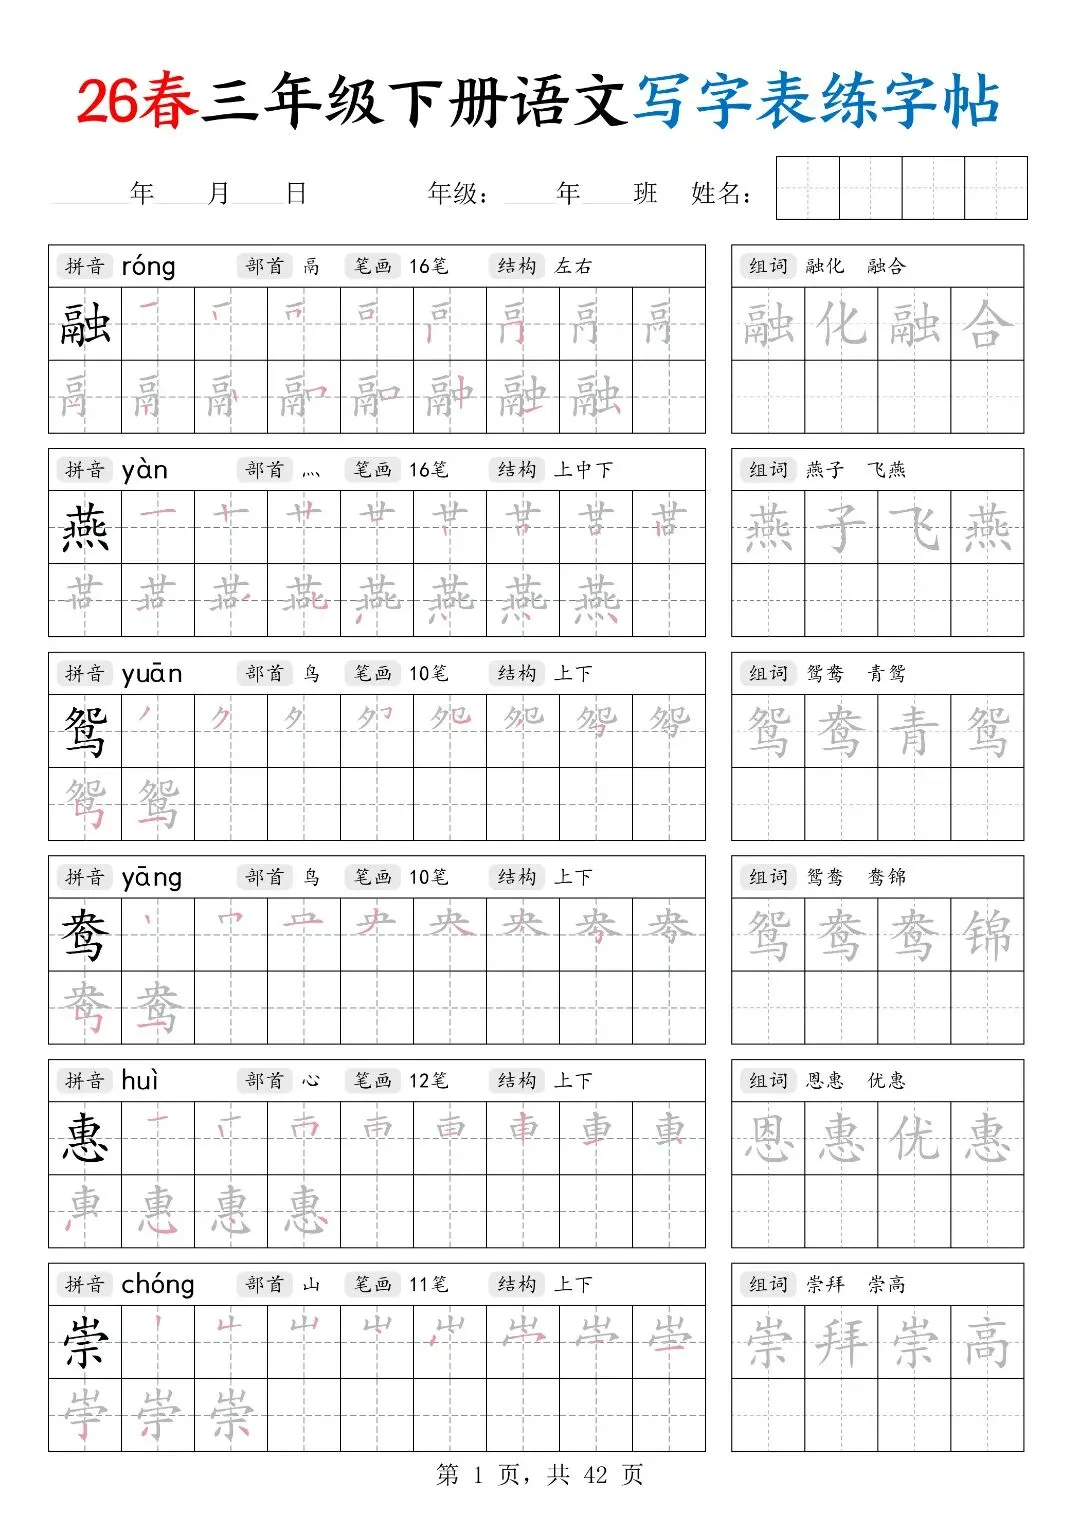 26春三年级下册语文写字表练字帖
年 月 日 年级： 年 班 姓名：
拼音 róng 部首 鬲 笔画 16笔 结构 左右 组词 融化 融合
融 融化融合
拼音 yàn 部首 灬 笔画 16笔 结构 上中下 组词 燕子 飞燕
燕 燕子飞燕
拼音 yuān 部首 鸟 笔画 10笔 结构 上下 组词 鸳鸯 青鸳
鸳 鸳鸯青鸳
拼音 yāng 部首 鸟 笔画 10笔 结构 上下 组词 鸳鸯 鸯锦
鸯 鸳鸯鸯锦
拼音 huì 部首 心 笔画 12笔 结构 上下 组词 恩惠 优惠
惠 恩惠优惠
拼音 chóng 部首 山 笔画 11笔 结构 上下 组词 崇拜 崇高
崇 崇拜崇高
第 1 页，共 42 页